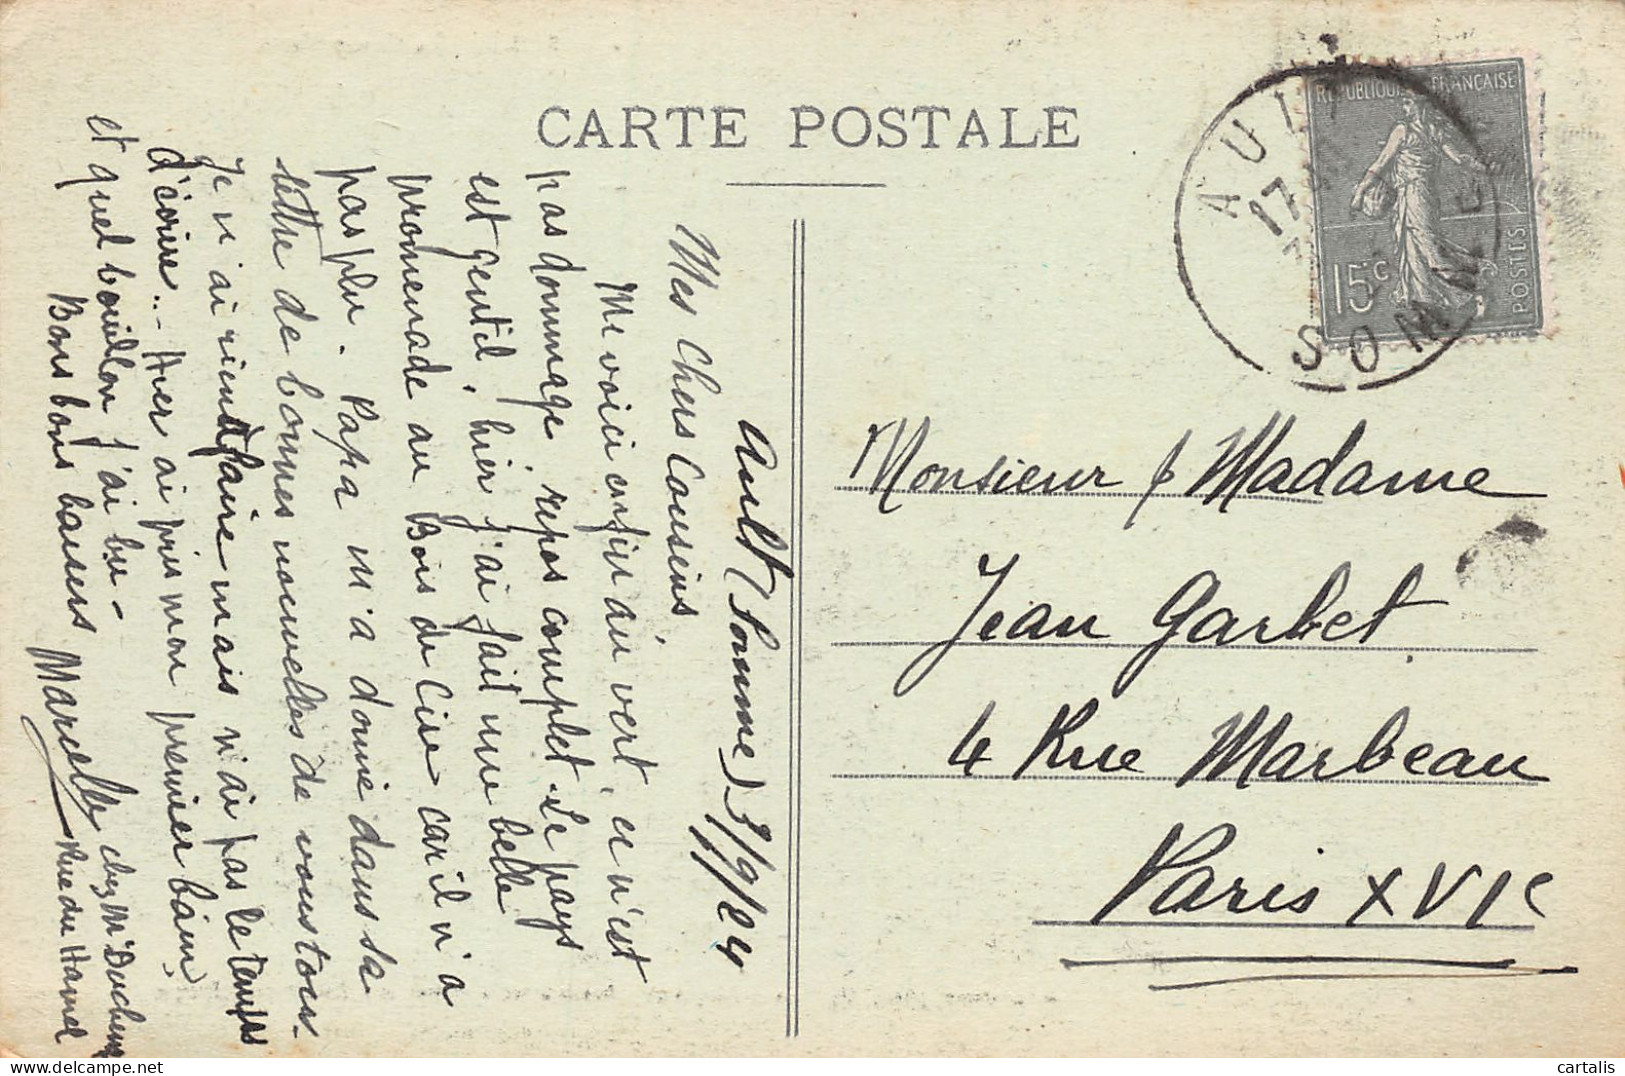 CARTE POSTALE
REPUBLIQUE FRANCAISE
15c
POSTES
AULT
17
SOMME
Ault (Somme) 3/9/24
Mes Chers Cousins,
Me voici enfin au vert, ce n'est
pas dommage repos complet. Le pays
est gentil, hier j'ai fait une belle
promenade au Bois de Cise car il n'a
pas plu. Papa m'a donné dans sa
lettre de bonnes nouvelles de vous tous.
Je n'ai rien à faire mais n'ai pas le temps
d'écrire... Hier ai pris mon premier bain,
et quel bouillon j'ai bu -
Bons bons baisers Marcelle
chez Mr
Rue du Hamel
Monsieur & Madame
Jean Garbet
4 Rue Marbeau
Paris XVIe
cartalis